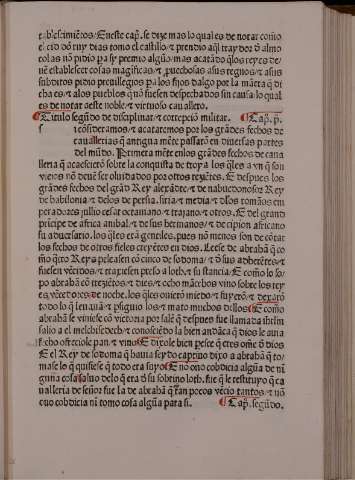 tablescimiētos/ En este cap̄. se dize mas lo qual es de notar como
el cid dō ruy dias tomo el castillo/ ⁊ prendio aq̄l traydor ð almo
colas no pidio pa sy premio algūo/ mas acatādo q̄los reyes de
uē establescer cosas magnificas/ ⁊ ꝓuechosas a sus regnos/ ⁊ a sus
subditos pidio preuillegios pa los fijos dalgo por la māera q̄ di
cha es/ ⁊ a los pueblos q̄ no fuesen despechados sin causa lo qual
es de notar deste noble/ ⁊ virtuoso cauallero.
¶ Titulo segūdo de disciplinar/ ⁊ correpciō militar. ¶ Cap̄. p̄.
s icōsideramos/ ⁊ acataremos por los grādes fechos de
cauallerias q̄ antigua mēte passarō en diuersas partes
del mūdo. Primera mēte en los grādes fechos de caua
lleria q̄ acaescierō sobre la conquista de troya los q̄les avn q̄ son
viejos nō deuē ser oluidados por otros reyētes. E despues los
grādes fechos del grād Rey alexādre/ ⁊ de nabucdonosor Rey
de babilonia/ ⁊ delos de persia. siria/ ⁊ media/ ⁊ dlos romāos em
peradores julio cesar octauiano/ ⁊ trajano/ ⁊ otros. E del grand
prīcipe de africa anibal/ ⁊ de sus hermanos/ ⁊ de cipion africano
su aduersario. los q̄les erā gentiles. pues nō menos son de cōtar
los fechos de otros fieles creyētes en dios. Leese de abrahā q̄ co
mo q̄tro Reys peleasen cō cinco de sodoma/ ⁊ ð sus adherētes/ ⁊
fuesen vēcidos/ ⁊ traxiesen preso a loth/ ⁊ su sustancia. E como lo so
po abrahā cō trezyētos/ ⁊ dies/ ⁊ ocho mācebos vino sobre los rey
es vēcedores de noche. los q̄les ouierō miedo/ ⁊ fuyerō/ ⁊ dexarō
todo lo q̄ leuauā/ ⁊ p̄siguio los/ ⁊ mato muchos dellos E como
abrahā se viniese cō victoria por sale q̄ despues fue llamada ihrlm
salio a el melchisedech/ ⁊ conosciēdo la bien andāça q̄ dios le auia
fecho ofresciole pan/ ⁊ vino E dixole bien pesce q̄ eres om̄e ð dios
E el Rey de sodoma q̄ hauia seydo captiuo dixo a abrahā q̄ to/
mase lo q̄ quisiese q̄ todo era suyo E nō ouo cobdicia algūa de ni
guna cosa saluo delo q̄ era ð su sobrino loth. fue q̄ le restituyo q̄ ca
ualleria de señor fue la de abrahā q̄ tan pocos vēcio tantos/ ⁊ nō
ouo cobdicia ni tomo cosa algūa para si. ¶ Cap̄. segūdo.